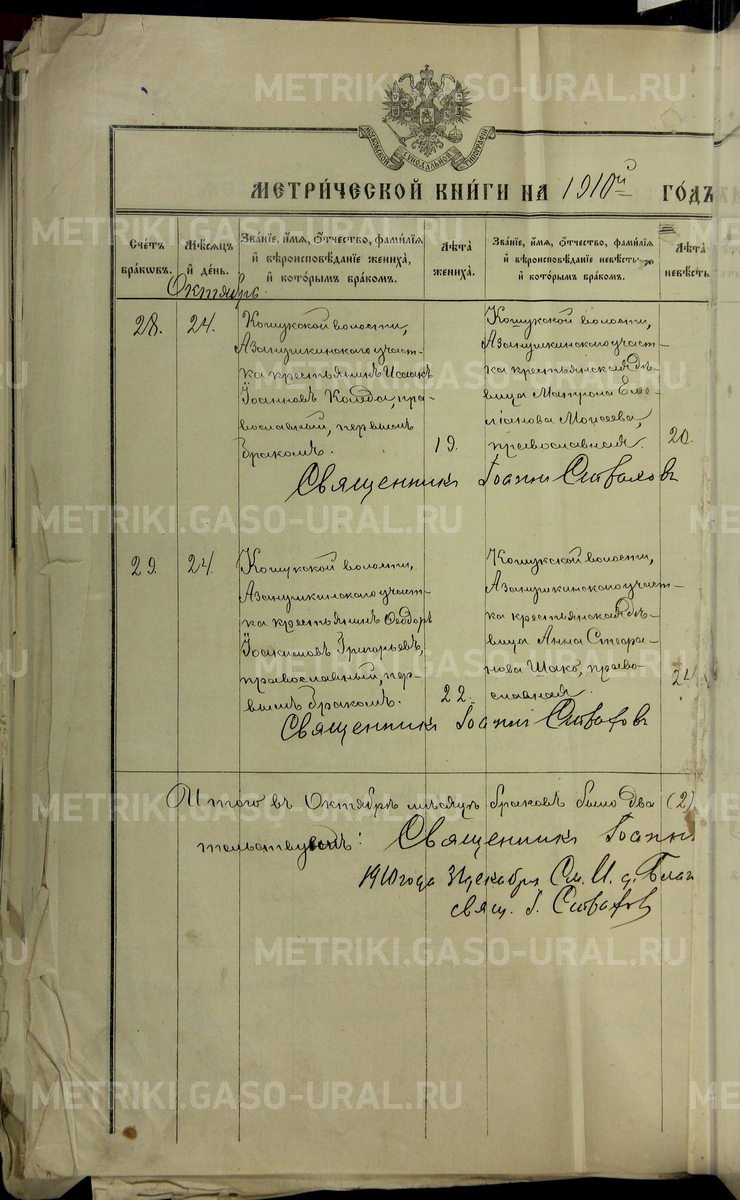 METRIKI.GASO-URAL.RU
МЕТРИ́ЧЕСКОЙ КНИ́ГИ НА 1910й ГО́ДЪ
Сче́тъ бра́кѡвъ.
Мѣ́сѧцъ и҆ де́нь.
Зва́нїе, и҆́мѧ, ѻ҆́тчество, фами́лїѧ и҆ вѣроисповѣ́данїе жениха̀, и҆ кото́рымъ бра́комъ.
Лѣ́та жениха̀.
Зва́нїе, и҆́мѧ, ѻ҆́тчество, фами́лїѧ и҆ вѣроисповѣ́данїе невѣ́сты и҆ кото́рымъ бра́комъ.
Лѣ́та невѣ́сты
Октябрь.
28.
24.
Кошукской волости,
Азанушкинскаго участ-
ка крестьянинъ Исаакъ
Іоанновъ, пра-
вославный, первымъ
бракомъ.
19.
Кошукской волости,
Азанушкинскаго участ-
ка крестьянская дѣ-
вица Матрона Еми-
ліанова Моисеева,
православная.
20.
Священникъ Іоаннъ
29.
24.
Кошукской волости,
Азанушкинскаго участ-
ка крестьянинъ Ѳеодоръ
Іоакимовъ Григорьевъ,
православный, пер-
вымъ бракомъ.
22.
Кошукской волости,
Азанушкинскаго участ-
ка крестьянская дѣ-
вица Анна Стефа-
нова, право-
славная.
21
Священникъ Іоаннъ
Итого въ Октябрѣ мѣсяцѣ браковъ было два (2)
Священникъ Іоаннъ
1910 года 31 декабря См. И. д. Благ
свящ. І.